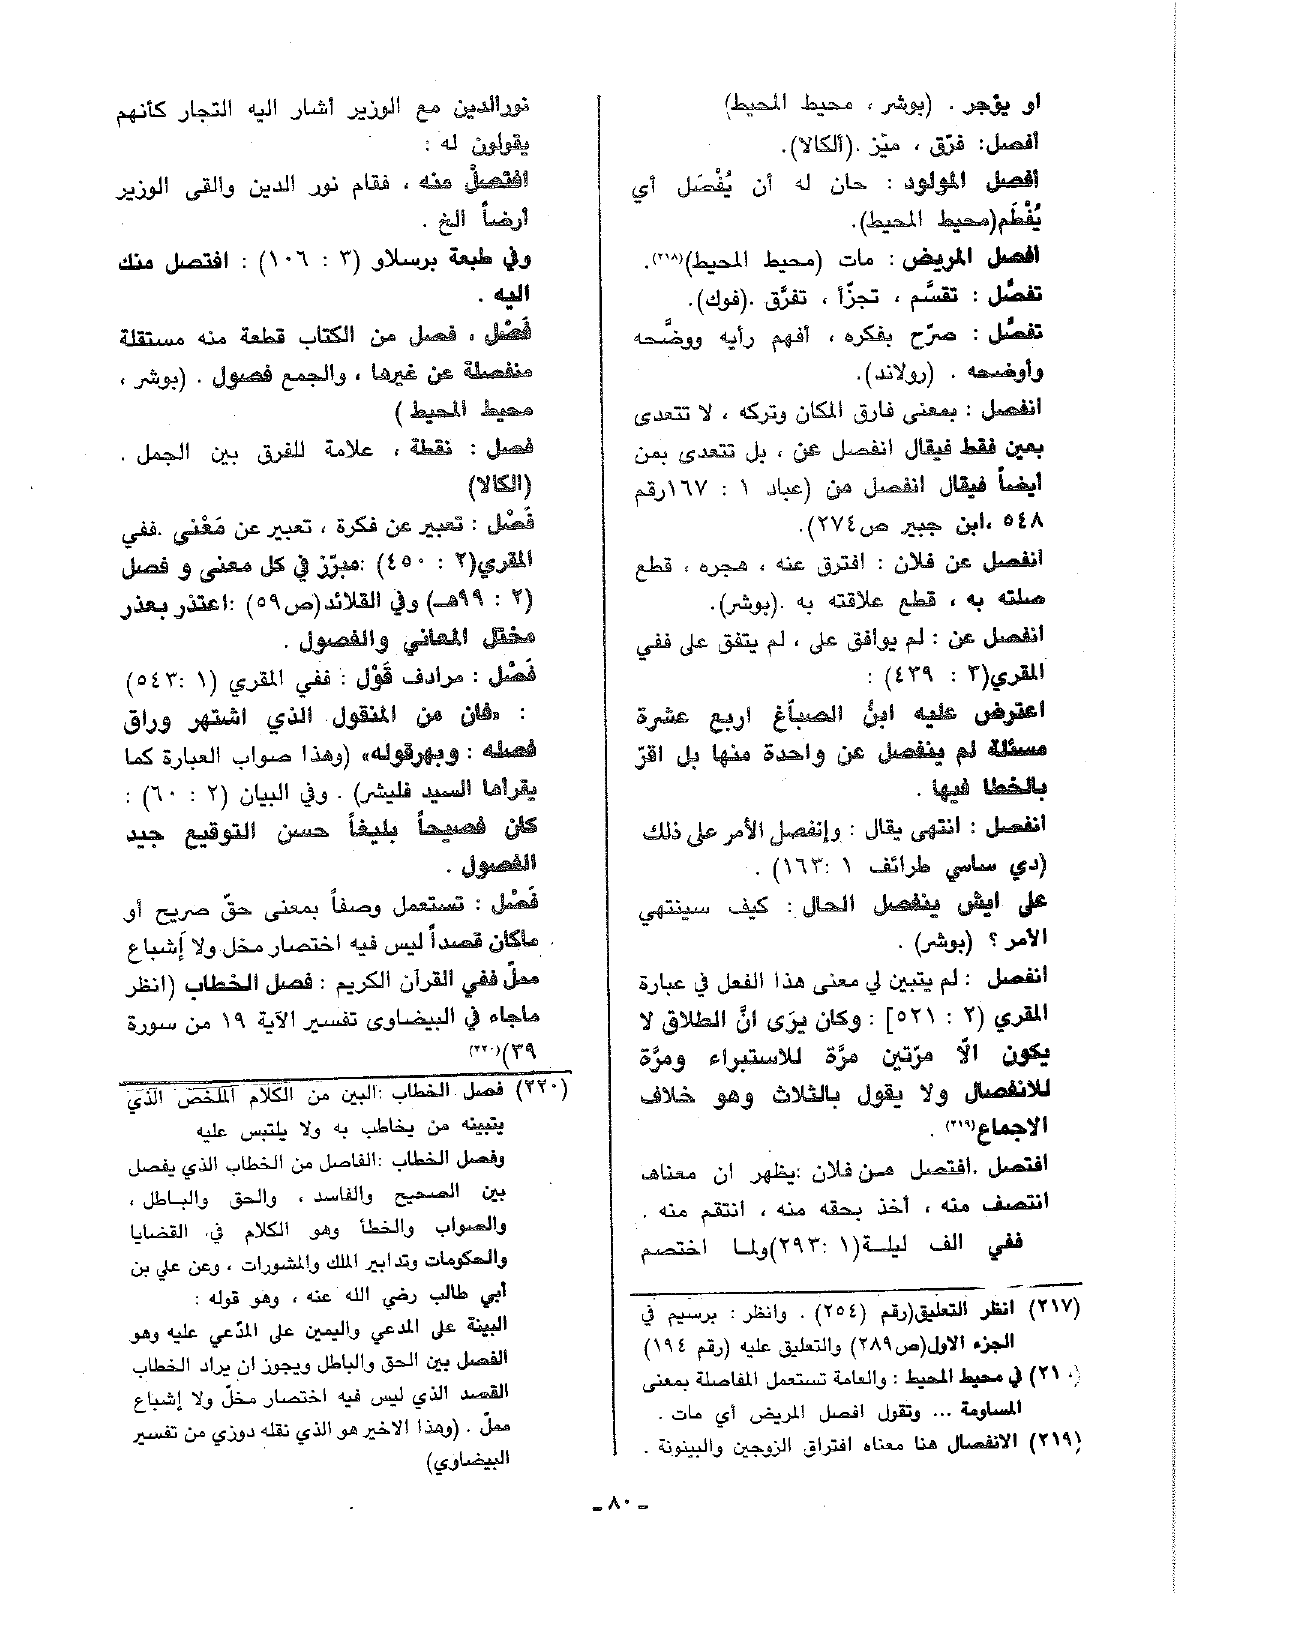 او يؤجر . (بوشر ، محيط المحيط)
أفصل: فرّق ، ميّز .(ألكالا).
أفصل المولود : حان له أن يُفْصَل أي
يُفْطَم(محيط المحيط).
افصل المريض : مات (محيط المحيط)(٢١٨).
تفصَّل : تقسَّم ، تجزّأ ، تفرَّق .(فوك).
تفصَّل : صرّح بفكره ، أفهم رأيه ووضَّحه
وأوضحه . (رولاند).
انفصل : بمعنى فارق المكان وتركه ، لا تتعدى
بعين فقط فيقال انفصل عن ، بل تتعدى بمن
أيضاً فيقال انفصل من (عباد ١ : ١٦٧رقم
٥٤٨ ،ابن جبير ص٢٧٤).
انفصل عن فلان : افترق عنه ، هجره ، قطع
صلته به ، قطع علاقته به .(بوشر).
انفصل عن : لم يوافق على ، لم يتفق على ففي
المقري(٣ : ٤٣٩) :
اعترض عليه ابنُ الصبّاغ اربع عشرة
مسئلة لم ينفصل عن واحدة منها بل اقرّ
بالخطا فيها .
انفصل : انتهى يقال : وإنفصل الأمر على ذلك
(دي ساسي طرائف ١ :١٦٣) .
على ايش ينفصل الحال : كيف سينتهي
الأمر ؟ (بوشر) .
انفصل : لم يتبين لي معنى هذا الفعل في عبارة
المقري (٢ : ٥٢١] : وكان يرَى انَّ الطلاق لا
يكون الّا مرّتين مرَّة للاستبراء ومرَّة
للانفصال ولا يقول بالثلاث وهو خلاف
الاجماع(٢١٩) .
افتصل .افتصل من فلان :يظهر ان معناها
انتصف منه ، أخذ بحقه منه ، انتقم منه .
ففي الف ليلة(١ :٢٩٣)ولما اختصم
(٢١٧) انظر التعليق(رقم (٢٥٤) . وانظر : برسيم في
الجزء الاول(ص٢٨٩) والتعليق عليه (رقم ١٩٤)
(٢١٠) في محيط المحيط : والعامة تستعمل المفاصلة بمعنى
المساومة ... وتقول افصل المريض أي مات .
(٢١٩) الانفصال هنا معناه افتراق الزوجين والبينونة .
نورالدين مع الوزير أشار اليه التجار كأنهم
يقولون له :
افتصلْ منه ، فقام نور الدين والقى الوزير
أرضاً الخ .
وفي طبعة برسلاو (٣ : ١٠٦) : افتصل منك
اليه .
فَصْل ، فصل من الكتاب قطعة منه مستقلة
منفصلة عن غيرها ، والجمع فصول . (بوشر ،
محيط المحيط )
فصل : نقطة ، علامة للفرق بين الجمل .
(الكالا)
فَصْل : تعبير عن فكرة ، تعبير عن مَعْنى .ففي
المقري(٢ : ٤٥٠) :مبرّز في كل معنى و فصل
(٢ : ٩٩هـ) وفي القلائد(ص٥٩) :اعتذر بعذر
مختل المعاني والفصول .
فَصْل : مرادف قَوْل : ففي المقري (١ :٥٤٣)
: «فان من المنقول الذي اشتهر وراق
فصله : وبهرقوله» (وهذا صواب العبارة كما
يقراها السيد فليشر) . وفي البيان (٢ : ٦٠) :
كان فصيحاً بليغاً حسن التوقيع جيد
الفصول .
فَصْل : تستعمل وصفاً بمعنى حقّ صريح أو
ماكان قصداً ليس فيه اختصار مخل ولا إشباع
مملّ ففي القرآن الكريم : فصل الخطاب (انظر
ماجاء في البيضاوى تفسير الآية ١٩ من سورة
٣٩)(٢٢٠)
(٢٢٠) فصل الخطاب :البين من الكلام الملخص الذي
يتبينه من يخاطب به ولا يلتبس عليه
وفصل الخطاب :الفاصل من الخطاب الذي يفصل
بين الصحيح والفاسد ، والحق والباطل ،
والصواب والخطأ وهو الكلام في القضايا
والحكومات وتدابير الملك والمشورات ، وعن علي بن
أبي طالب رضي الله عنه ، وهو قوله :
البينة على المدعي واليمين على المدّعي عليه وهو
الفصل بين الحق والباطل ويجوز ان يراد الخطاب
القصد الذي ليس فيه اختصار مخلّ ولا إشباع
مملّ . (وهذا الاخير هو الذي نقله دوزي من تفسير
البيضاوي)
- ٨٠ -